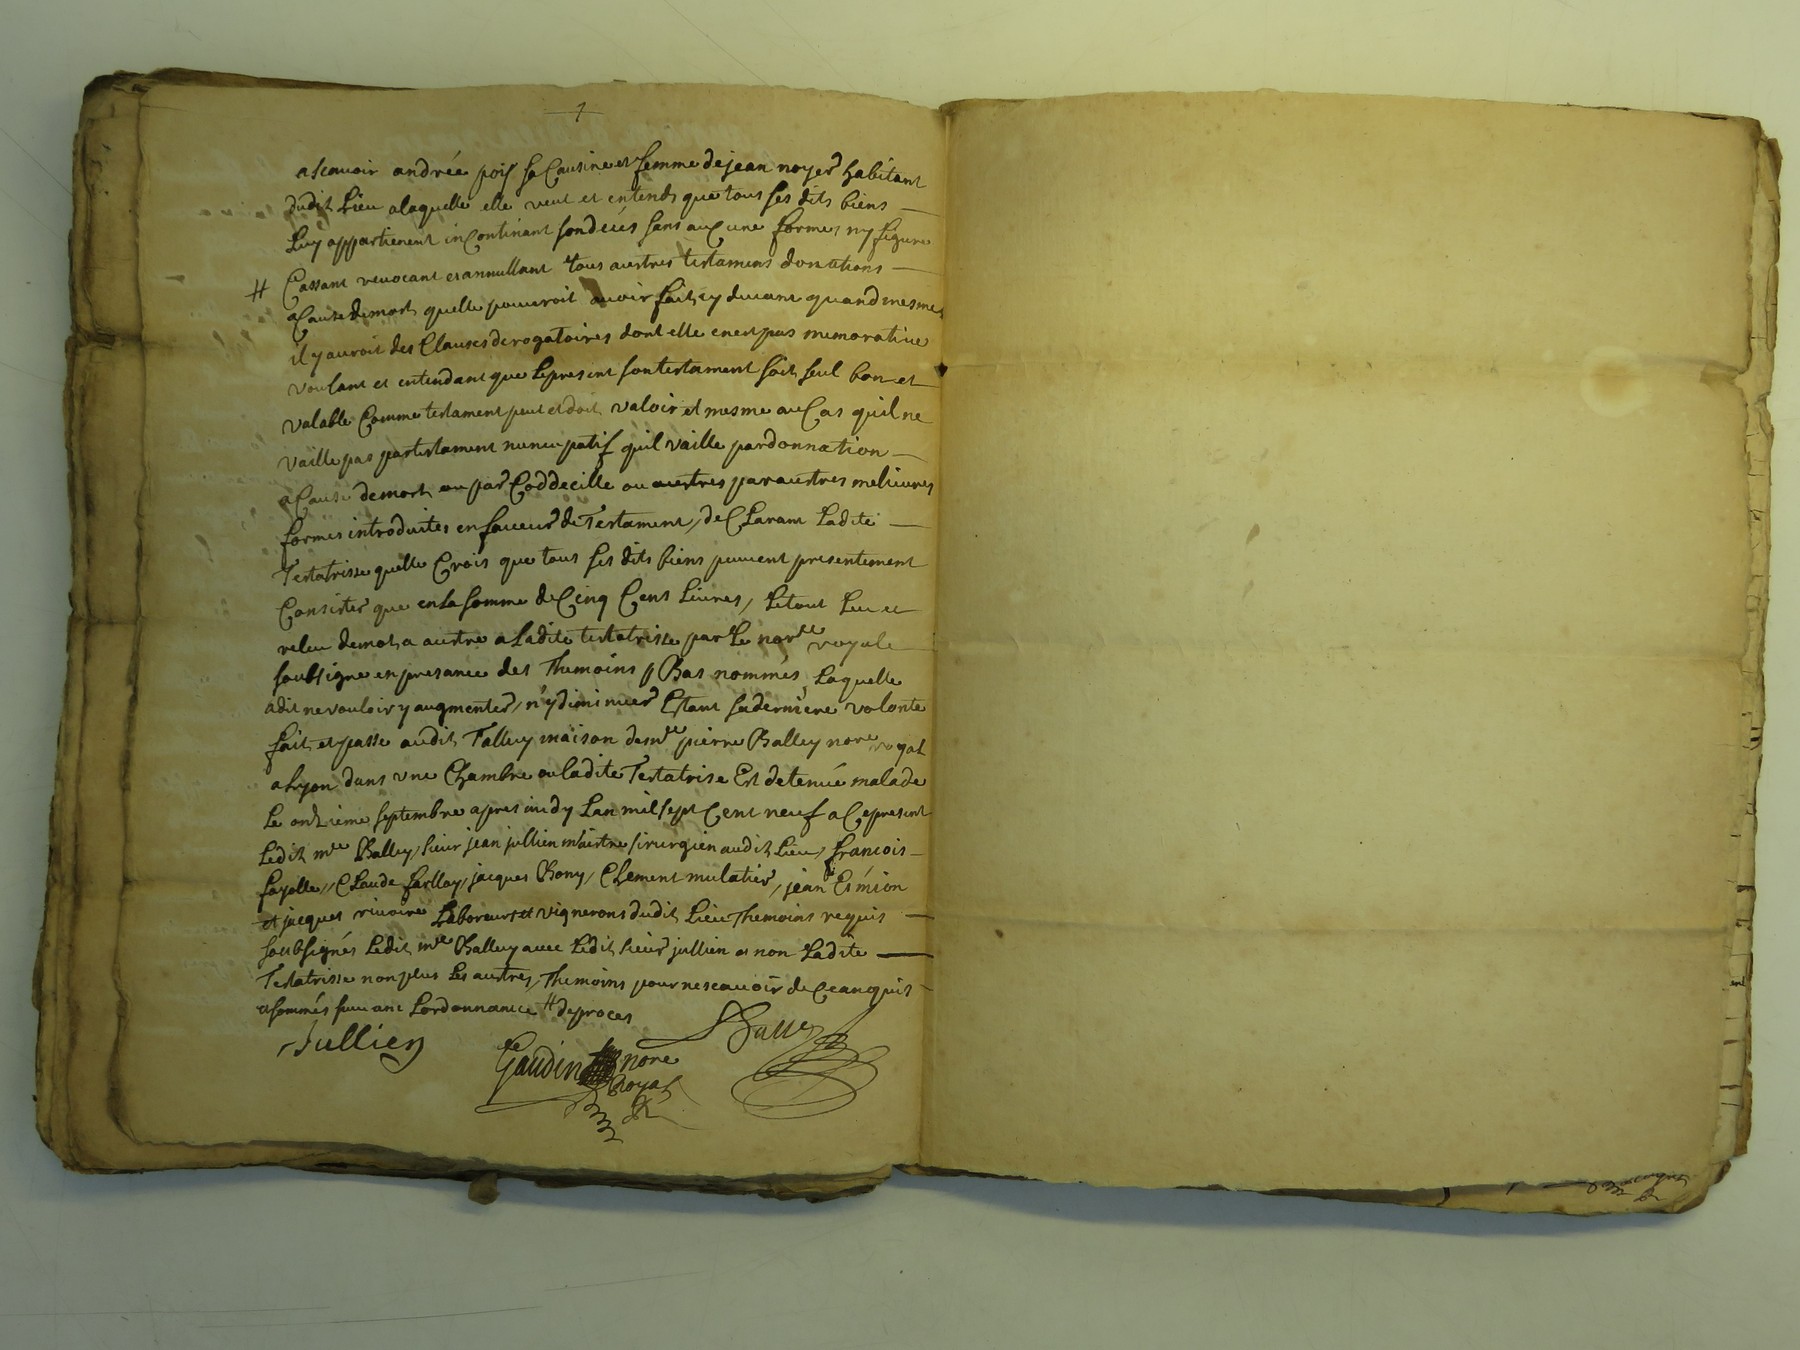 ascavoir andrée poix sa Cousine et femme de jean noyer habitant
dudit Lieu alaquelle elle veut et entends que tous ses dits biens
Luy appartienent inContinant sondeces sans auCune formes ny figure
# Cassant revocant et annullant tous austres testamens donations
aCause demort quelle pouvroit avoir fait cy devant quand mesmes
il y auroit des Clauses derogatoires dont elle enest pas memorative
voulant et entendant que Lepresent sontestament soit seul bon et
valable Comme testament peut et doit valoir et mesme auCas quil ne
vaille pas partestament nuncupatif quil vaille pardonnation
aCause demort ou par Coddecille ou austres par austres melieures
formes introduites en faveur de Testament, deClarant Ladite
Testatrisse quelle Crois que tous ses dits biens peuvent presentement
Consister que en La somme de Cinq Cens Livres, Letout Leu et
releu demot a austre a Ladite testatrisse par Le nore royale
soubsigne en presance des Themoins Bas nommés, Laquelle
adit ne vouloir y augmenter, n'y diminuer Estant saderniere volonte
fait et passe audit Talluy maison de mre pierre Balley nore royal
aLyon dans une Chambre ou ladite Testatrise Est detenue malade
Le onzieme septembre apres midy Lan mil sept Cent neuf aCepresent
Ledit mre Balley, sieur jean jullien maistre sirurgien audit Lieu, francois
fayolle, Claude farllay, jacques Bony, Clement mulatier, jean Esmion
et jacques rivoire Laboreurs et vignerons dudit Lieu Themoins requis
soubsignés Ledit mre Balley avec Ledit sieur jullien et non Ladite
Testatrisse non plus Les austres Themoins pour ne scavoir de Ceanquis
asommés suivant Lordonnance # deproces
Jullien
Balley
Gaudin nore
Royal